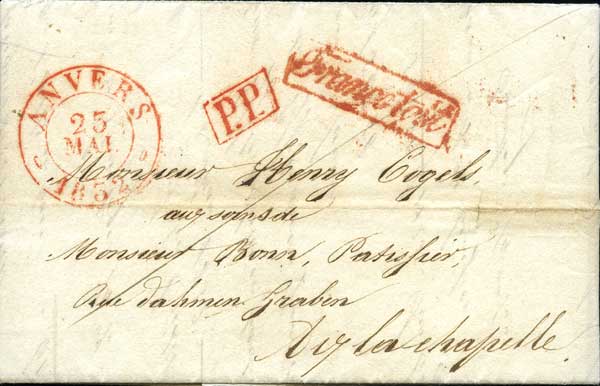 ANVERS
25
MAI
1832
P.P.
Franco tout
Monsieur Henry Cogels,
aux soins de
Monsieur Bonn, Patissier,
Rue dahmen graben
Aix la chapelle.